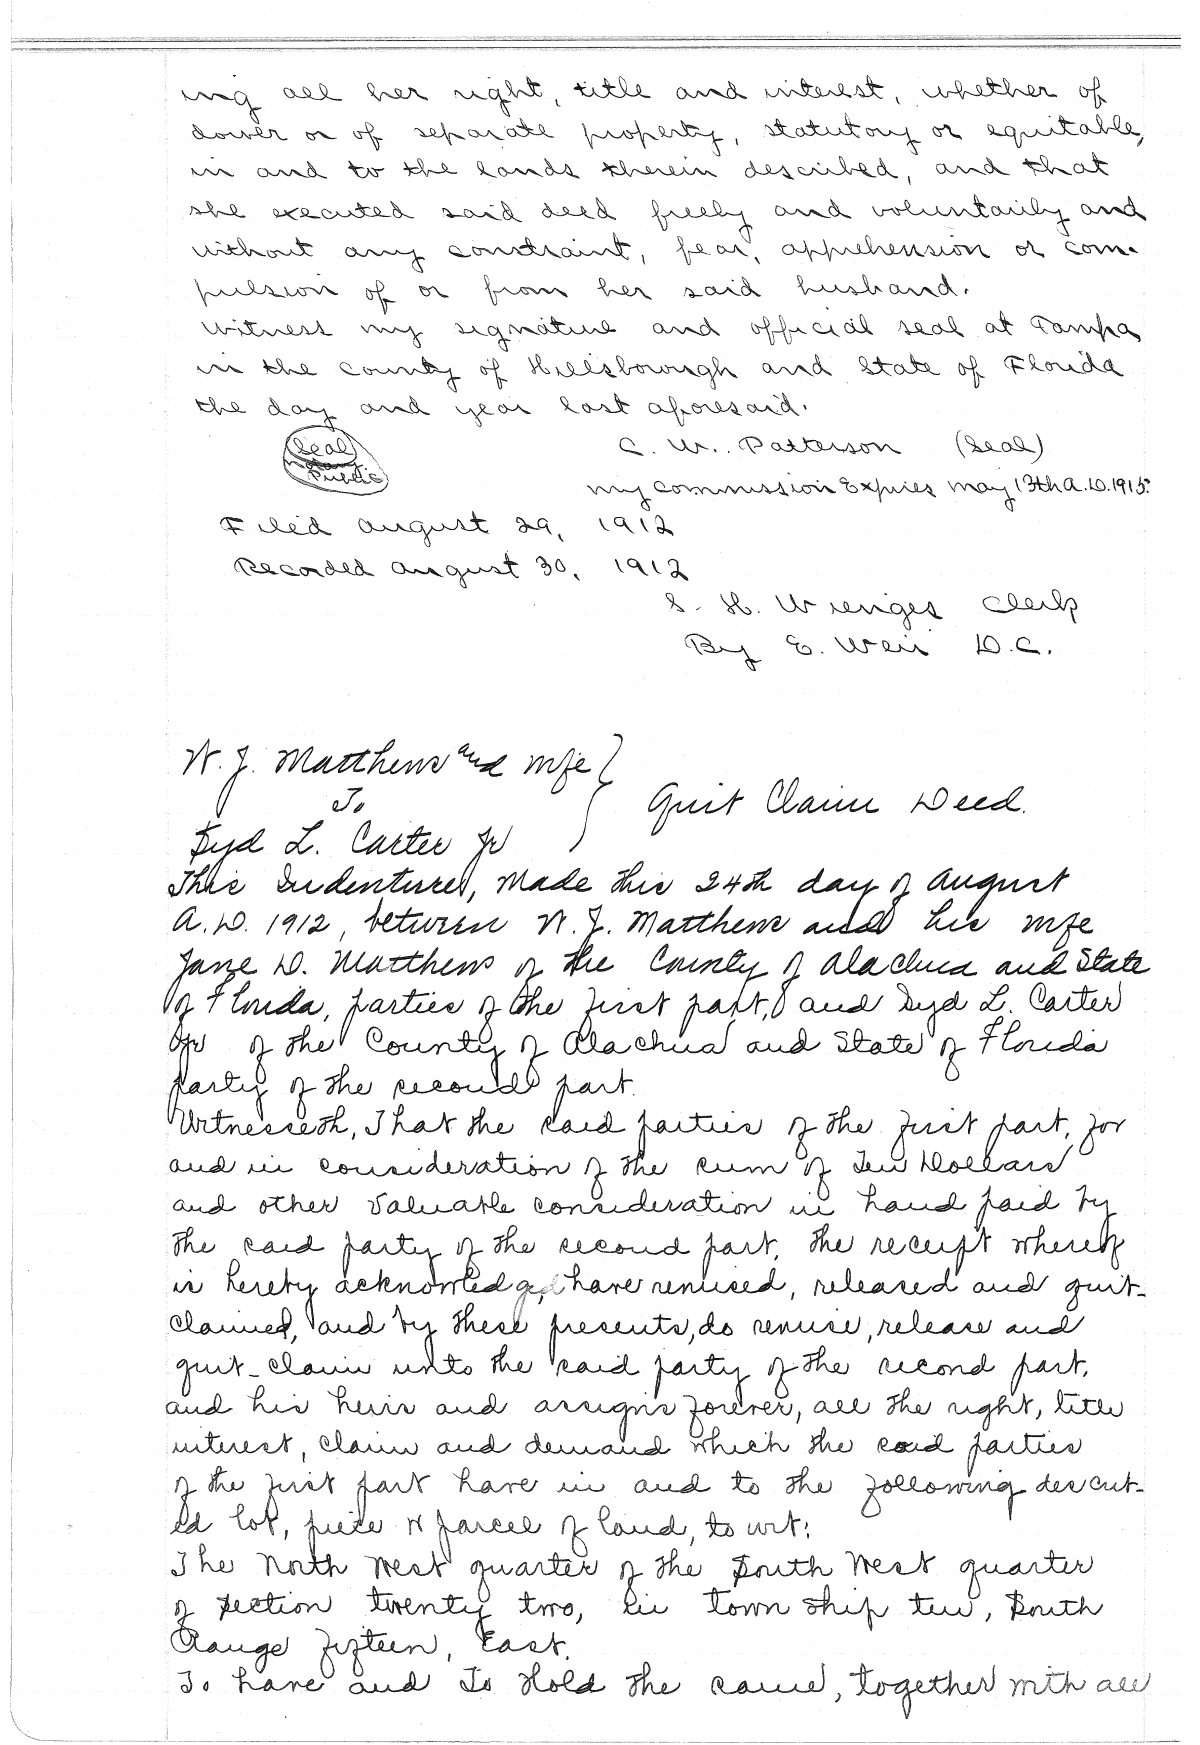 ing all her right, title and interest, whether of
dower or of separate property, statutory or equitable,
in and to the lands therein described, and that
she executed said deed freely and voluntarily and
without any constraint, fear, apprehension or com-
pulsion of or from her said husband.
Witness my signature and official seal at Tampa
in the county of Hillsborough and State of Florida
the day and year last aforesaid.
Seal
Notary
Public
C. W. Patterson (Seal)
My commission Expires May 13th A.D. 1915.
Filed August 29, 1912
Recorded August 30, 1912
S. H. Wienges Clerk
By E. Weir D.C.
W. J. Matthews and wife
To
Syd L. Carter Jr
Quit Claim Deed.
This Indenture, Made this 24th day of August
A.D. 1912, between W. J. Matthews and his wife
Jane D. Matthews of the County of Alachua and State
of Florida, parties of the first part, and Syd L. Carter
Jr of the County of Alachua and State of Florida
party of the second part.
Witnesseth, That the said parties of the first part, for
and in consideration of the sum of Ten Dollars
and other Valuable consideration in hand paid by
the said party of the second part, the receipt whereof
is hereby acknowledged, have remised, released and quit-
claimed, and by these presents, do remise, release and
quit-claim unto the said party of the second part,
and his heirs and assigns forever, all the right, title
interest, claim and demand which the said parties
of the first part have in and to the following describ-
ed lot, piece or parcel of land, to wit:
The North West quarter of the South West quarter
of Section twenty two, in town ship ten, South
Range fifteen, East.
To have and To Hold the same, together with all